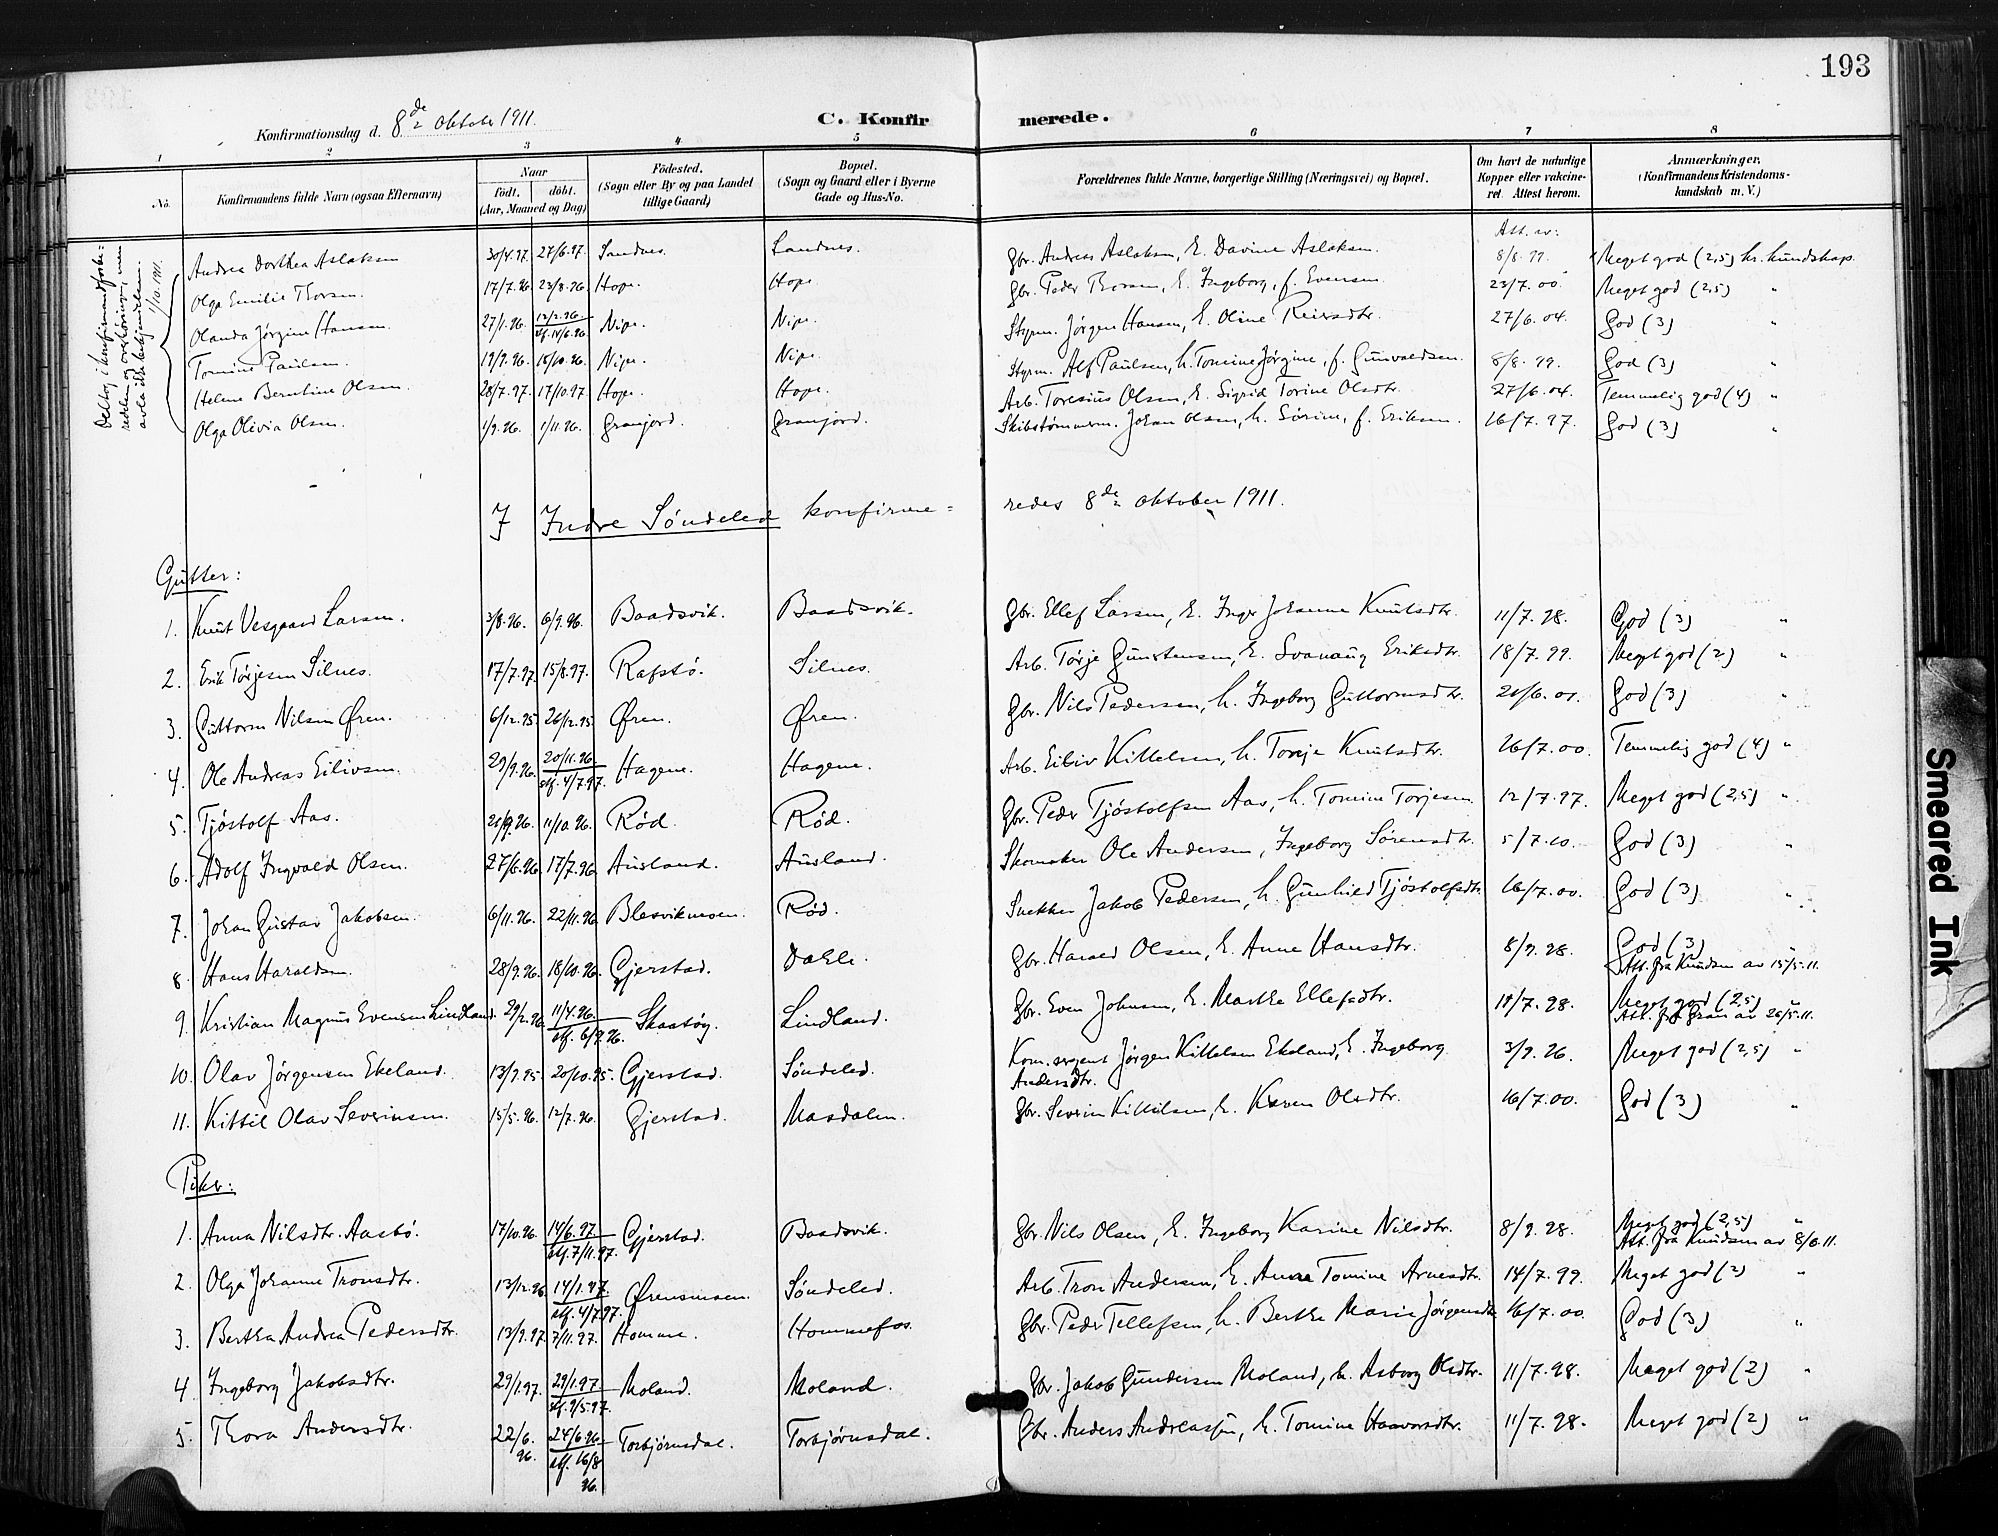 193
Konfirmationsdag d. 8de oktober 1911.
C. Konfirmerede.
1 2 3 4 5 6 7 8
No. Konfirmandens fulde Navn (ogsaa Efternavn) Naar født. døbt. (Aar, Maaned og Dag) Fødested. (Sogn eller By og paa Landet tillige Gaard) Bopæl. (Sogn og Gaard eller i Byerne Gade og Hus-No. Forældrenes fulde Navne, borgerlige Stilling (Næringsvei) og Bopæl. Om havt de naturlige Kopper eller vakcineret. Attest herom. Anmærkninger. (Konfirmandens Kristendomskundskab m. V.)
Att. av:
Andrea Dorthea Aslaksen 30/4.97. 27/6.97. Sandnes. Sandnes. Gbr. Andreas Aslaksen, E. Davine Aslaksen. 8/8.99. Meget god (2,5) kr. kundskap.
Olga Emilie Thorsen. 17/7.96 23/8.96. Hope. Hope. Gbr. Peder Thorsen, E. Ingeborg, f. Evensen 23/7.00. Meget god (2,5) "
Olanda Jørgine Hansen. 27/1.96. 13/2.96. stf. 14/6.96 Nipe. Nipe. Styrm. Jørgen Hansen, E. Oline Reiersdtr. 27/6.04. God (3) "
Tomine Paulsen. 19/9.96. 15/10.96. Nipe. Nipe. Styrm. Alf Paulsen, h. Tomine Jørgine, f. Gunvaldsen. 8/8.99. God (3) "
Helene Berntine Olsen. 28/7.97. 17/10.97. Hope. Hope. Arb. Toresius Olsen, E. Sigrid Torine Olsdtr. 27/6.04. Temmelig god (4) "
Olga Olivia Olsen. 1/9.96. 1/11.96. Granjord. Granjord. Skibstømmerm. Johan Olsen, h. Sørine, f. Eriksen. 16/7.97. God (3) "
I Indre Søndeled konfirmeredes 8de oktober 1911.
Gutter:
1. Knut Vesgaard Larsen. 3/8.96. 6/9.96. Baadsvik. Baadsvik. Gbr. Ellef Larsen, E. Inger Johanne Knutsdtr. 11/7.98. God (3) "
2. Erik Tørjesen Silnes. 17/7.97. 15/8.97. Rafstø. Silnes. Arb. Tørje Gunstensen, E. Svanaug Eriksdtr. 18/7.99. Meget god (2) "
3. Guttorm Nilsen Øren. 6/12.95. 26/12.95. Øren. Øren. Gbr. Nils Pedersen, h. Ingeborg Guttormsdtr. God (3) "
4. Ole Andreas Eilivsen. 29/9.96. 20/11.96. stf. 4/7.97. Hagene. Hagene. Arb. Eiliv Kittelsen, h. Torje Knutsdtr. 26/7.00. Temmelig god (4) "
5. Tjøstolf Aas. 11/10.96. Rød. Rød. Gbr. Peder Tjøstolfsen Aas, h. Tomine Torjesen 12/7.97. Meget god (2,5) "
6. Adolf Ingvald Olsen. 27/6.96. 17/7.96. Ausland. Ausland. Skomaker Ole Andersen, Ingeborg Sørensdtr. 5/7.10. God (3) "
7. Johan Gustav Jakobsen. 6/11.96. 22/11.96. Blesvikmoen. Rød. Snekker Jakob Pedersen, h. Gunhild Tjøstolfsdtr. 16/7.00. God (3) "
8. Hans Haraldsen. 28/9.96. 18/10.96. Gjerstad. Dahle. Gbr. Harald Olsen, E. Anne Hansdtr. 8/9.98. God (3) " Att. fra Knudsen av 15/5.11.
9. Kristian Magnus Evensen Lindland. 29/2.96. 11/4.96. stf. 6/9.96. Skaatøy. Lindland. Gbr. Even Johnsen, E. Marthe Ellefsdtr. 11/7.98. Meget god (2,5) " Att. fra Gran av 26/5.11.
10. Olav Jørgensen Ekeland. 13/9.95. 20/10.95. Gjerstad. Søndeled. Kom. sergent Jørgen Kittelsen Ekeland, E. Ingeborg Andersdtr. 3/9.96. Meget god (2,5) "
11. Kittil Olav Severinsen. 15/5.96. 12/7.96. Gjerstad. Masdalen. Gbr. Severin Kittilsen, E. Karen Olsdtr. 16/7.00. God (3) "
Piker:
1. Anna Nilsdtr. Aasbø. 17/10.96. 14/6.97 stf. 7/11.97. Gjerstad. Baadsvik. Gbr. Nils Olsen, E. Ingeborg Karine Nilsdtr. 8/9.98. Meget god (2,5) " Att. fra Knudsen av 8/6.11.
2. Olga Johanne Tronsdtr. 13/12.96 14/1.97. stf. 4/7.97. Ørensmoen. Søndeled. Arb. Tron Andersen, E. Anne Tomine Arnesdtr. 14/7.99. Meget god (2) "
3. Berthe Andrea Pedersdtr. 13/9.97. 7/11.97. Homme. Hommefos Gbr. Peder Tellefsen, h. Berthe Marie Jørgensdtr. 16/7.00. God (3) "
4. Ingeborg Jakobsdtr. 29/1.97. 29/1.97 stf. 9/5.97. Moland. Moland. Gbr. Jakob Gundersen Moland, h. Asborg Olsdtr. 11/7.98. Meget god (2) "
5. Thora Andersdtr. 22/6.96. 24/6.96. stf. 16/8 96. Torbjørnsdal. Torbjørnsdal. Gbr. Anders Andreassen, h. Tomine Haavorsdtr. 11/7.98. Meget god (2) "
Deltog i konfirmandforberedelsen og overhøringen, men avla ikke bekjendelsen. 1/10.1911.
Smeared Ink